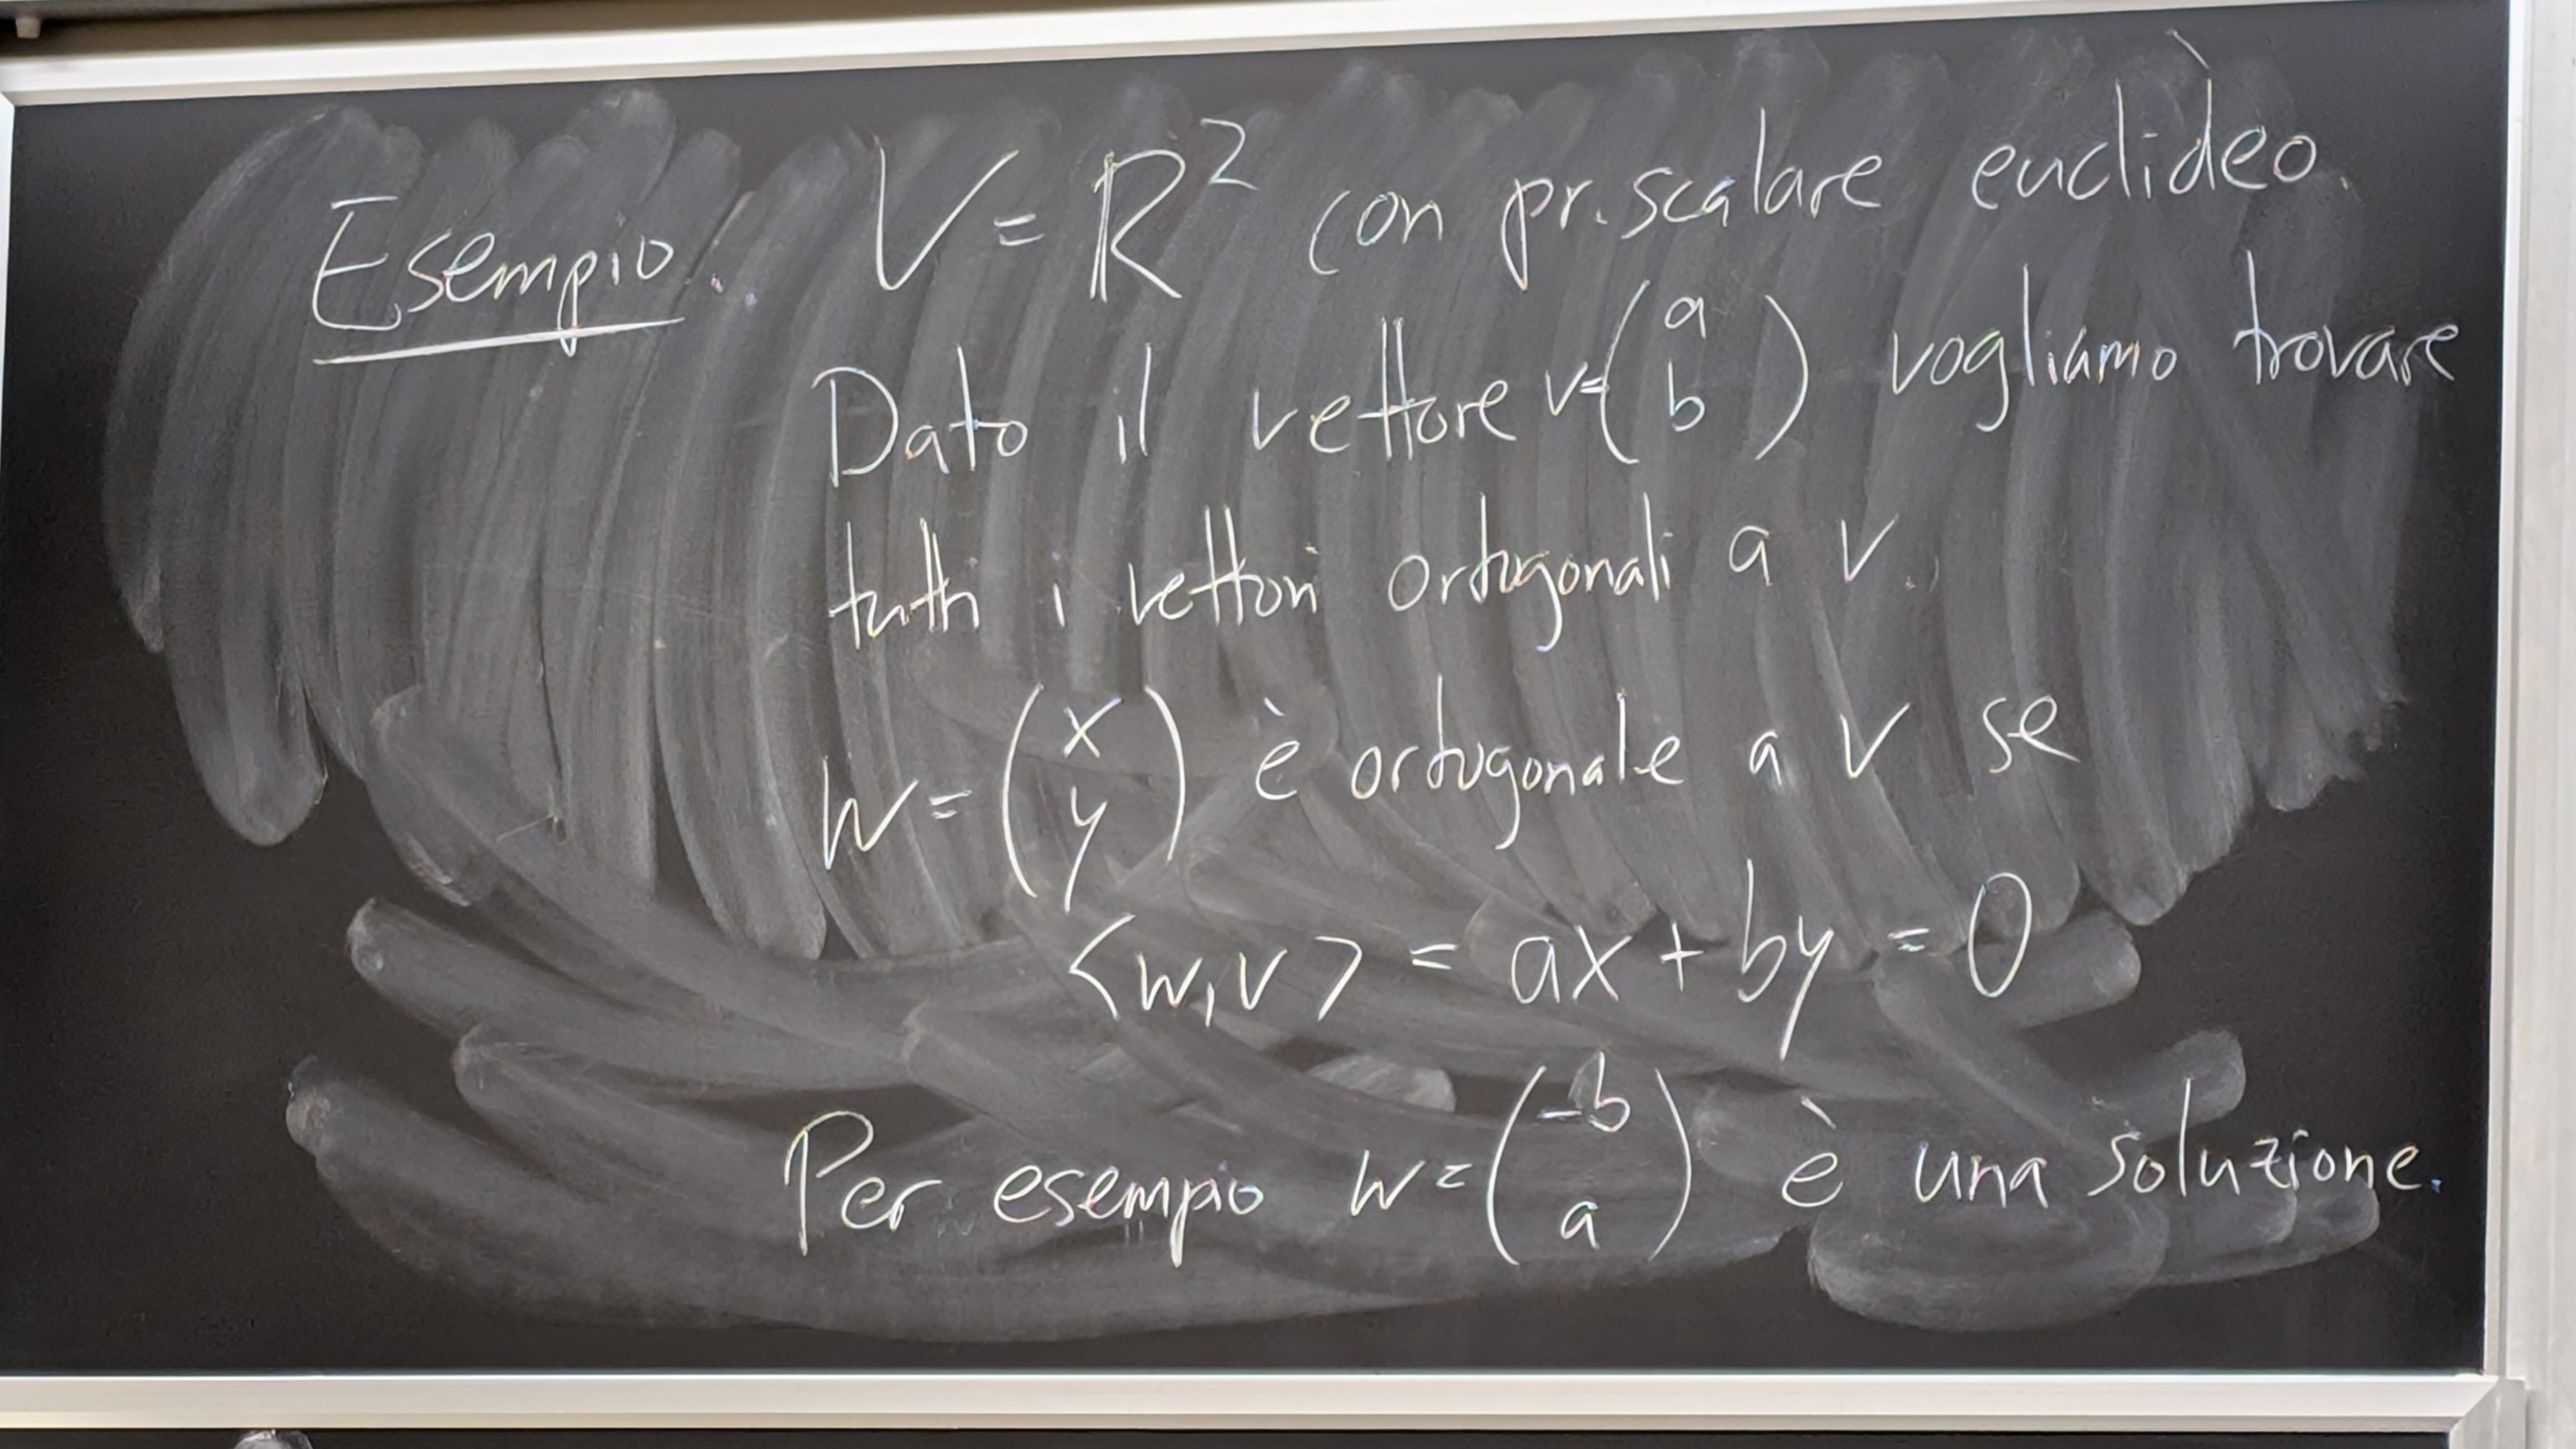 Esempio. V = R² con pr. scalare euclideo.
Dato il vettore v = (a b) vogliamo trovare
tutti i vettori ortogonali a v.
w = (x y) è ortogonale a v se
<w,v> = ax + by = 0
Per esempio w = (-b a) è una soluzione.